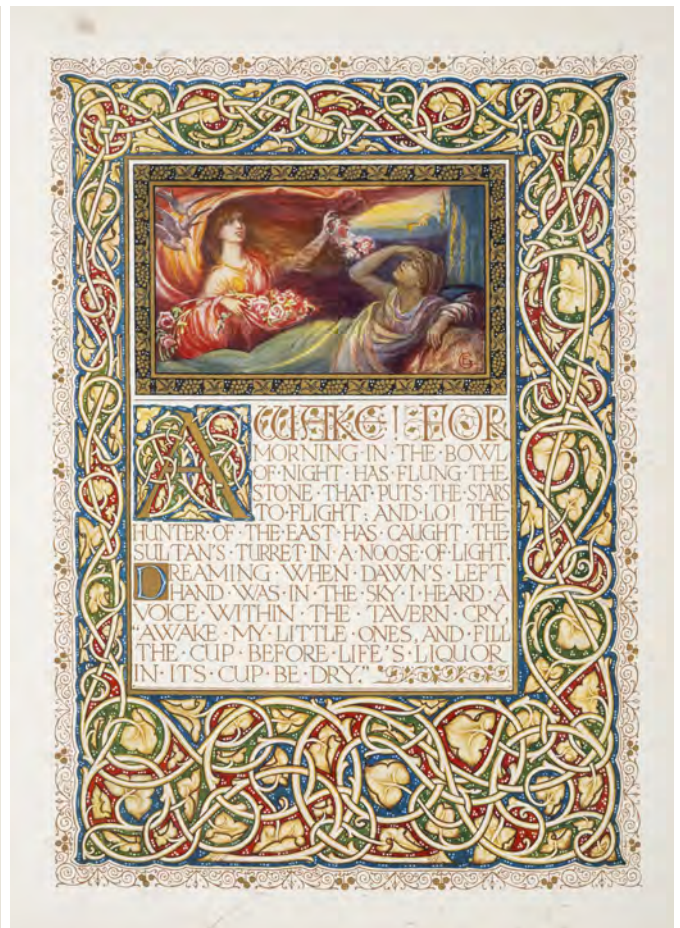 AWAKE! FOR
MORNING·IN·THE·BOWL
OF·NIGHT·HAS·FLUNG·THE
STONE·THAT·PUTS·THE·STARS
TO·FLIGHT: AND·LO! THE
HUNTER·OF·THE·EAST·HAS·CAUGHT·THE
SULTAN'S·TURRET·IN·A·NOOSE·OF·LIGHT.
DREAMING·WHEN·DAWN'S·LEFT
HAND·WAS·IN·THE·SKY·I·HEARD·A
VOICE·WITHIN·THE·TAVERN·CRY,
"AWAKE·MY·LITTLE·ONES, AND·FILL
THE·CUP·BEFORE·LIFE'S·LIQUOR
IN·ITS·CUP·BE·DRY."